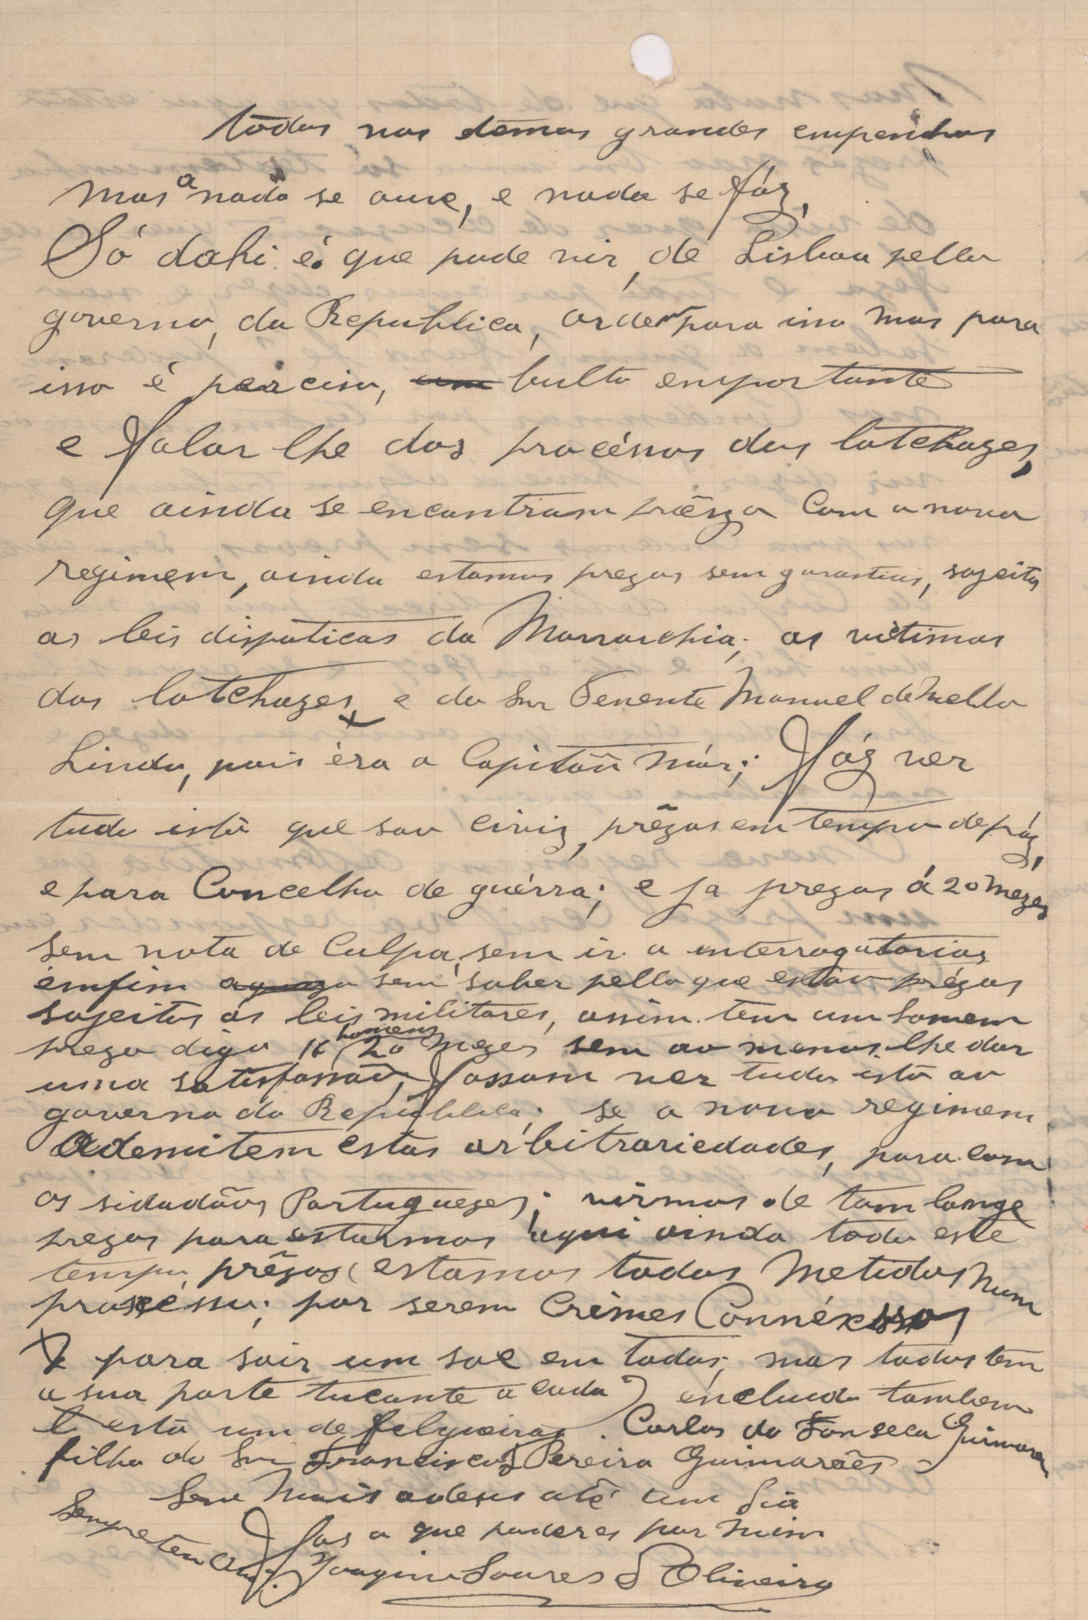 todos nos temos grandes empenhos
mas a nada se ouve, e nada se fáz,
Só dahi é que pode vir, de Lisboa pello
governo, da Republica, ordem para isso mas para
isso é percizo, um bulto emportante
e falar lhe dos procéssos dos latchazes,
que ainda se encontram prezos com o novo
regimem, ainda estamos prezos sem garantias, sogeitos
as leis dispoticas da Monarchia; as vitimas
dos latchazes, e do Snr Tenente Manuel de Mello
Lindo, pois éra o Capitão mór; Fáz ver
tudo isto que sou civis, prêzos em tempo de páz,
e para Concelho de guérra; e ja prezos á 20 mezes
sem nota de Culpa, sem ir a interrogatorios
emfim sem saber pello que estão prézos
sogeitos as leis militares, assim tem um homem
prezo digo 16 homens 20 mezes sem ao menos lhe dar
uma satisfassão, Fassam ver tudo isto ao
governo da Republica; se o novo regimem
Ademitem estas arbitrariedades, para com
os sidadãos Portuguezes; virmos de tam longe
prezos para estarmos aqui ainda todo este
tempo, prêzos (estamos todos Metidos num
processo; por serem Crimes Connéxssos
para sair um sae em todos; mas todos tem
a sua parte tucante a cada) encluido tambem
lá está um de felgueiras. Carlos da Fonseca Guimarães
filho do Snr Francisco Pereira Guimarães
Sem Mais adeus até um dia
Fas o que puderes por mim
Sempre teu Am.
Joaquim Soares d'Oliveira